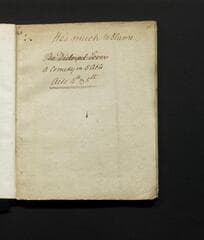 He's much to blame
The Distrest Lover
A Comedy in 5 Acts
Acts 4th & 5th